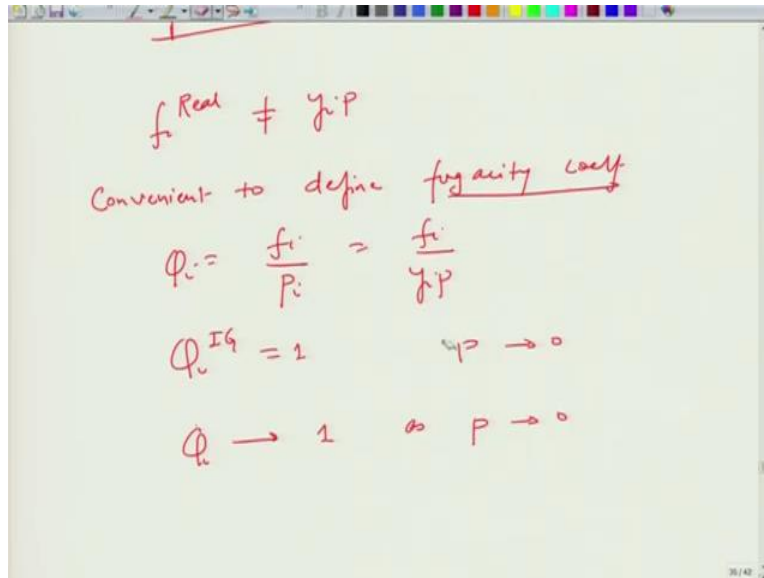 f_i^Real ≠ y_i P
Convenient to define fugacity coeff
φ_i = f_i / P_i = f_i / y_i P
φ_i^IG = 1 P → 0
φ_i → 1 as P → 0
35/42